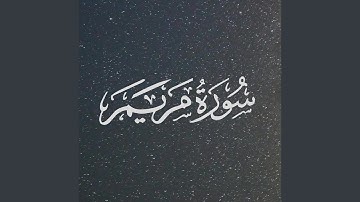 سُورَةُ مَريَمَ